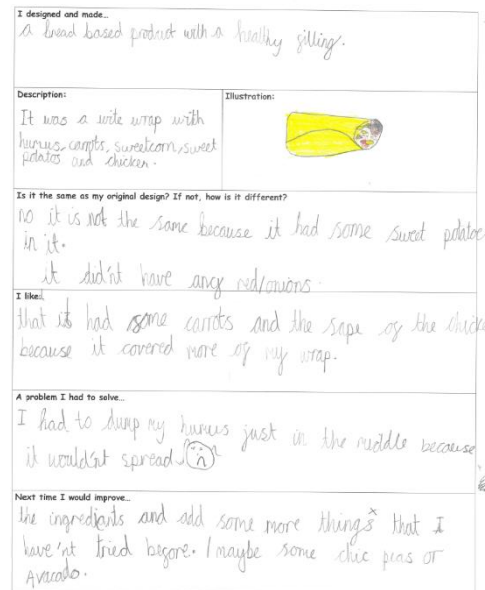 I designed and made...
a bread based product with a healthy filling.
Description:
It was a wite wrap with
humus, carrots, sweetcorn, sweet
potatos and chicken.
Illustration:
Is it the same as my original design? If not, how is it different?
no it is not the same because it had some sweet potatoe
in it.
it did'nt have any red/onions.
I like...
that it had some carrots and the sape of the chick
because it covered more of my wrap.
A problem I had to solve...
I had to dump my humus just in the middle because
it would'nt spread.
Next time I would improve...
the ingrediants and add some more things that I
have'nt tried before. / maybe some chic peas or
Avacado.